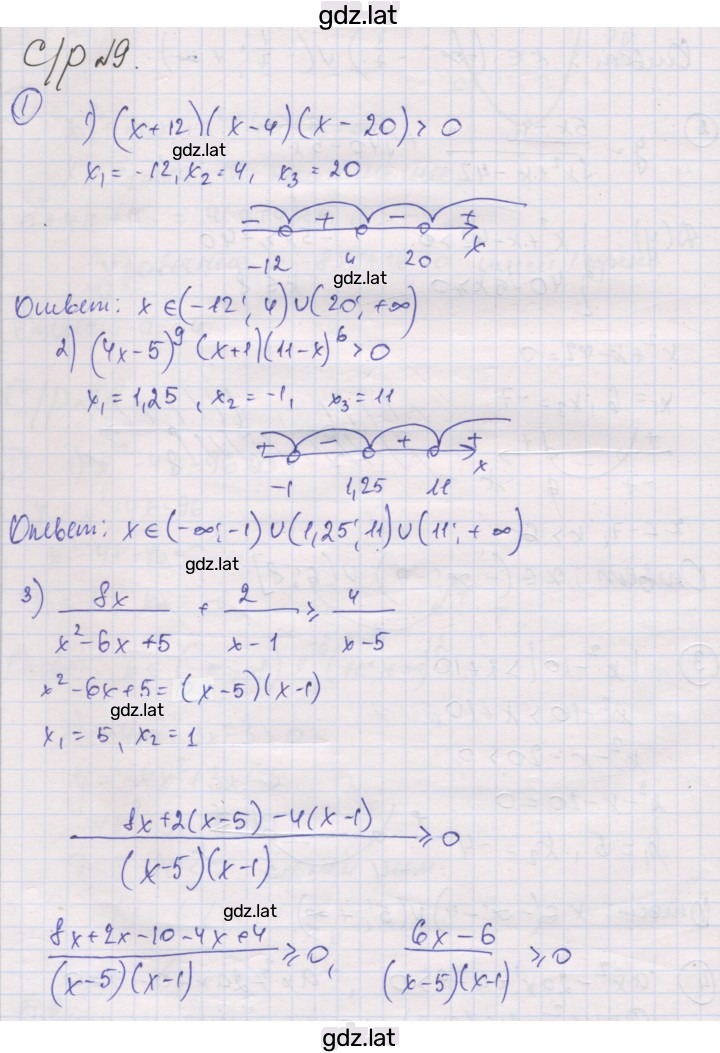 gdz.lat
С/р №9.
① 1) (x+12)(x-4)(x-20)>0
gdz.lat
x₁=-12, x₂=4, x₃=20
- + - +
-12 4 20 x
gdz.lat
Ответ: x∈(-12; 4)∪(20; +∞)
2) (4x-5)⁹ (x+1)(11-x)⁶>0
x₁=1,25, x₂=-1, x₃=11
+ - + +
-1 1,25 11 x
Ответ: x∈(-∞;-1)∪(1,25; 11)∪(11; +∞)
gdz.lat
3) 8x/(x²-6x+5) + 2/(x-1) ≥ 4/(x-5)
x²-6x+5=(x-5)(x-1)
gdz.lat
x₁=5, x₂=1
(8x+2(x-5)-4(x-1))/((x-5)(x-1)) ≥0
gdz.lat
(8x+2x-10-4x+4)/((x-5)(x-1)) ≥0, (6x-6)/((x-5)(x-1)) ≥0
gdz.lat